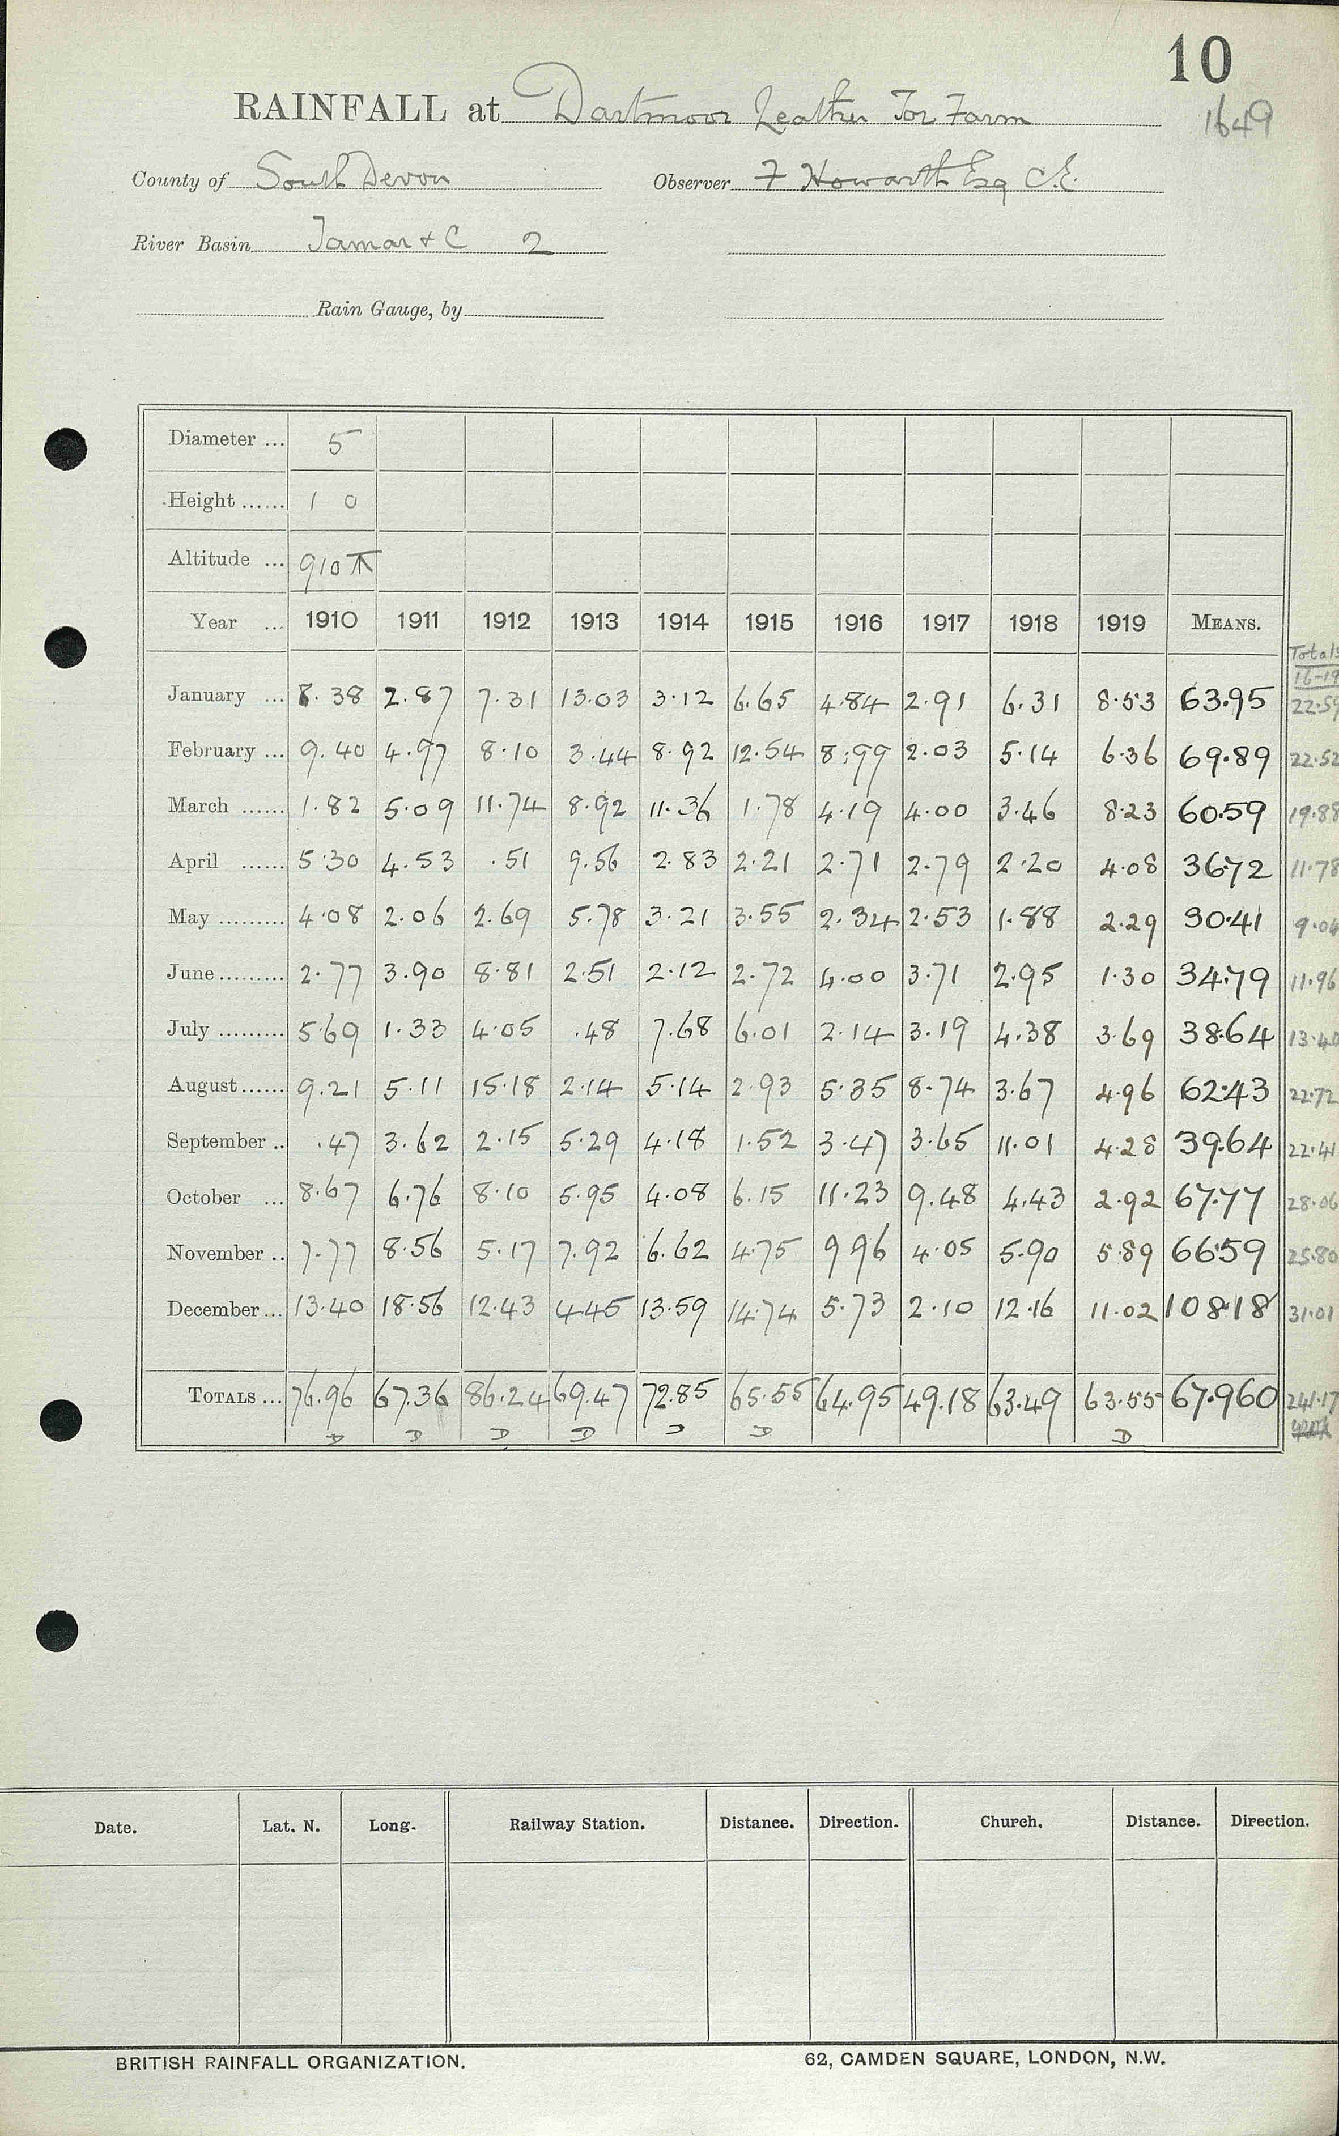 10
RAINFALL at Dartmoor Leather Tor Farm
1649
County of South Devon Observer F Howarth Esq C.E.
River Basin Tamar & C 2
Rain Gauge, by
Diameter ... 5
Height ...... 1 0
Altitude ... 910 ft
Year ... 1910 1911 1912 1913 1914 1915 1916 1917 1918 1919 MEANS.
Totals
16-19
January ... 8.38 2.87 7.31 13.03 3.12 6.65 4.84 2.91 6.31 8.53 63.95 22.59
February ... 9.40 4.97 8.10 3.44 8.92 12.54 8.99 2.03 5.14 6.36 69.89 22.52
March ...... 1.82 5.09 11.74 8.92 11.36 1.78 4.19 4.00 3.46 8.23 60.59 19.88
April ...... 5.30 4.53 .51 9.56 2.83 2.21 2.71 2.79 2.20 4.08 36.72 11.78
May ......... 4.08 2.06 2.69 5.78 3.21 3.55 2.34 2.53 1.88 2.29 30.41 9.04
June ......... 2.77 3.90 8.81 2.51 2.12 2.72 4.00 3.71 2.95 1.30 34.79 11.96
July ......... 5.69 1.33 4.05 .48 7.68 6.01 2.14 3.19 4.38 3.69 38.64 13.40
August ...... 9.21 5.11 15.18 2.14 5.14 2.93 5.35 8.74 3.67 4.96 62.43 22.72
September .. .47 3.62 2.15 5.29 4.18 1.52 3.47 3.65 11.01 4.28 39.64 22.41
October ... 8.67 6.76 8.10 5.95 4.08 6.15 11.23 9.48 4.43 2.92 67.77 28.06
November .. 7.77 8.56 5.17 7.92 6.62 4.75 9 96 4.05 5.90 5.89 66.59 25.80
December ... 13.40 18.56 12.43 4.45 13.59 14.74 5.73 2.10 12.16 11.02 108.18 31.01
TOTALS ... 76.96 67.36 86.24 69.47 72.85 65.55 64.95 49.18 63.49 63.55 67.960 241.17
D D D D D D D
Date. Lat. N. Long. Railway Station. Distance. Direction. Church. Distance. Direction.
BRITISH RAINFALL ORGANIZATION. 62, CAMDEN SQUARE, LONDON, N.W.